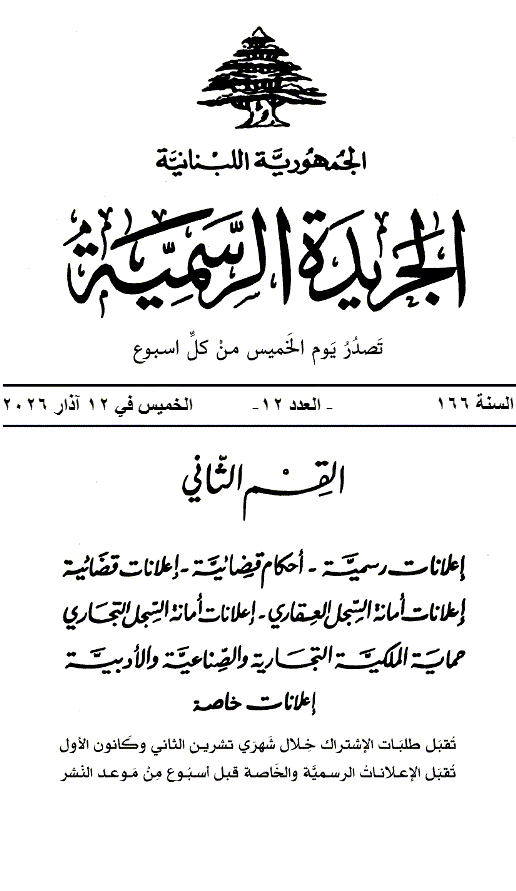 الجُمهُوريَّة اللبْنَانيَّة
الجَريدَة الرسَّمِيَّة
تَصدُرُ يَوم الخَميس منْ كلِّ اسبوع
السنة ١٦٦ - العدد ١٢- الخميس في ١٢ آذار ٢٠٢٦
القِسْم الثّاني
إعلانات رسميَّة - أحكام قضائيَّة - إعلانات قضائية
إعلانات أمانة السّجل العقاري - إعلانات أمانة السّجل التجاري
حماية الملكيَّة التجارية والصِّناعيَّة والأدبيَّة
إعلانات خاصة
تُقبَل طلبَات الإشتراك خِلال شَهرَي تشرين الثاني وكَانون الأول
تُقبَل الإعلاناتُ الرسميَّة والخَاصة قبل أسبُوع مِنْ مَوعد النَشر